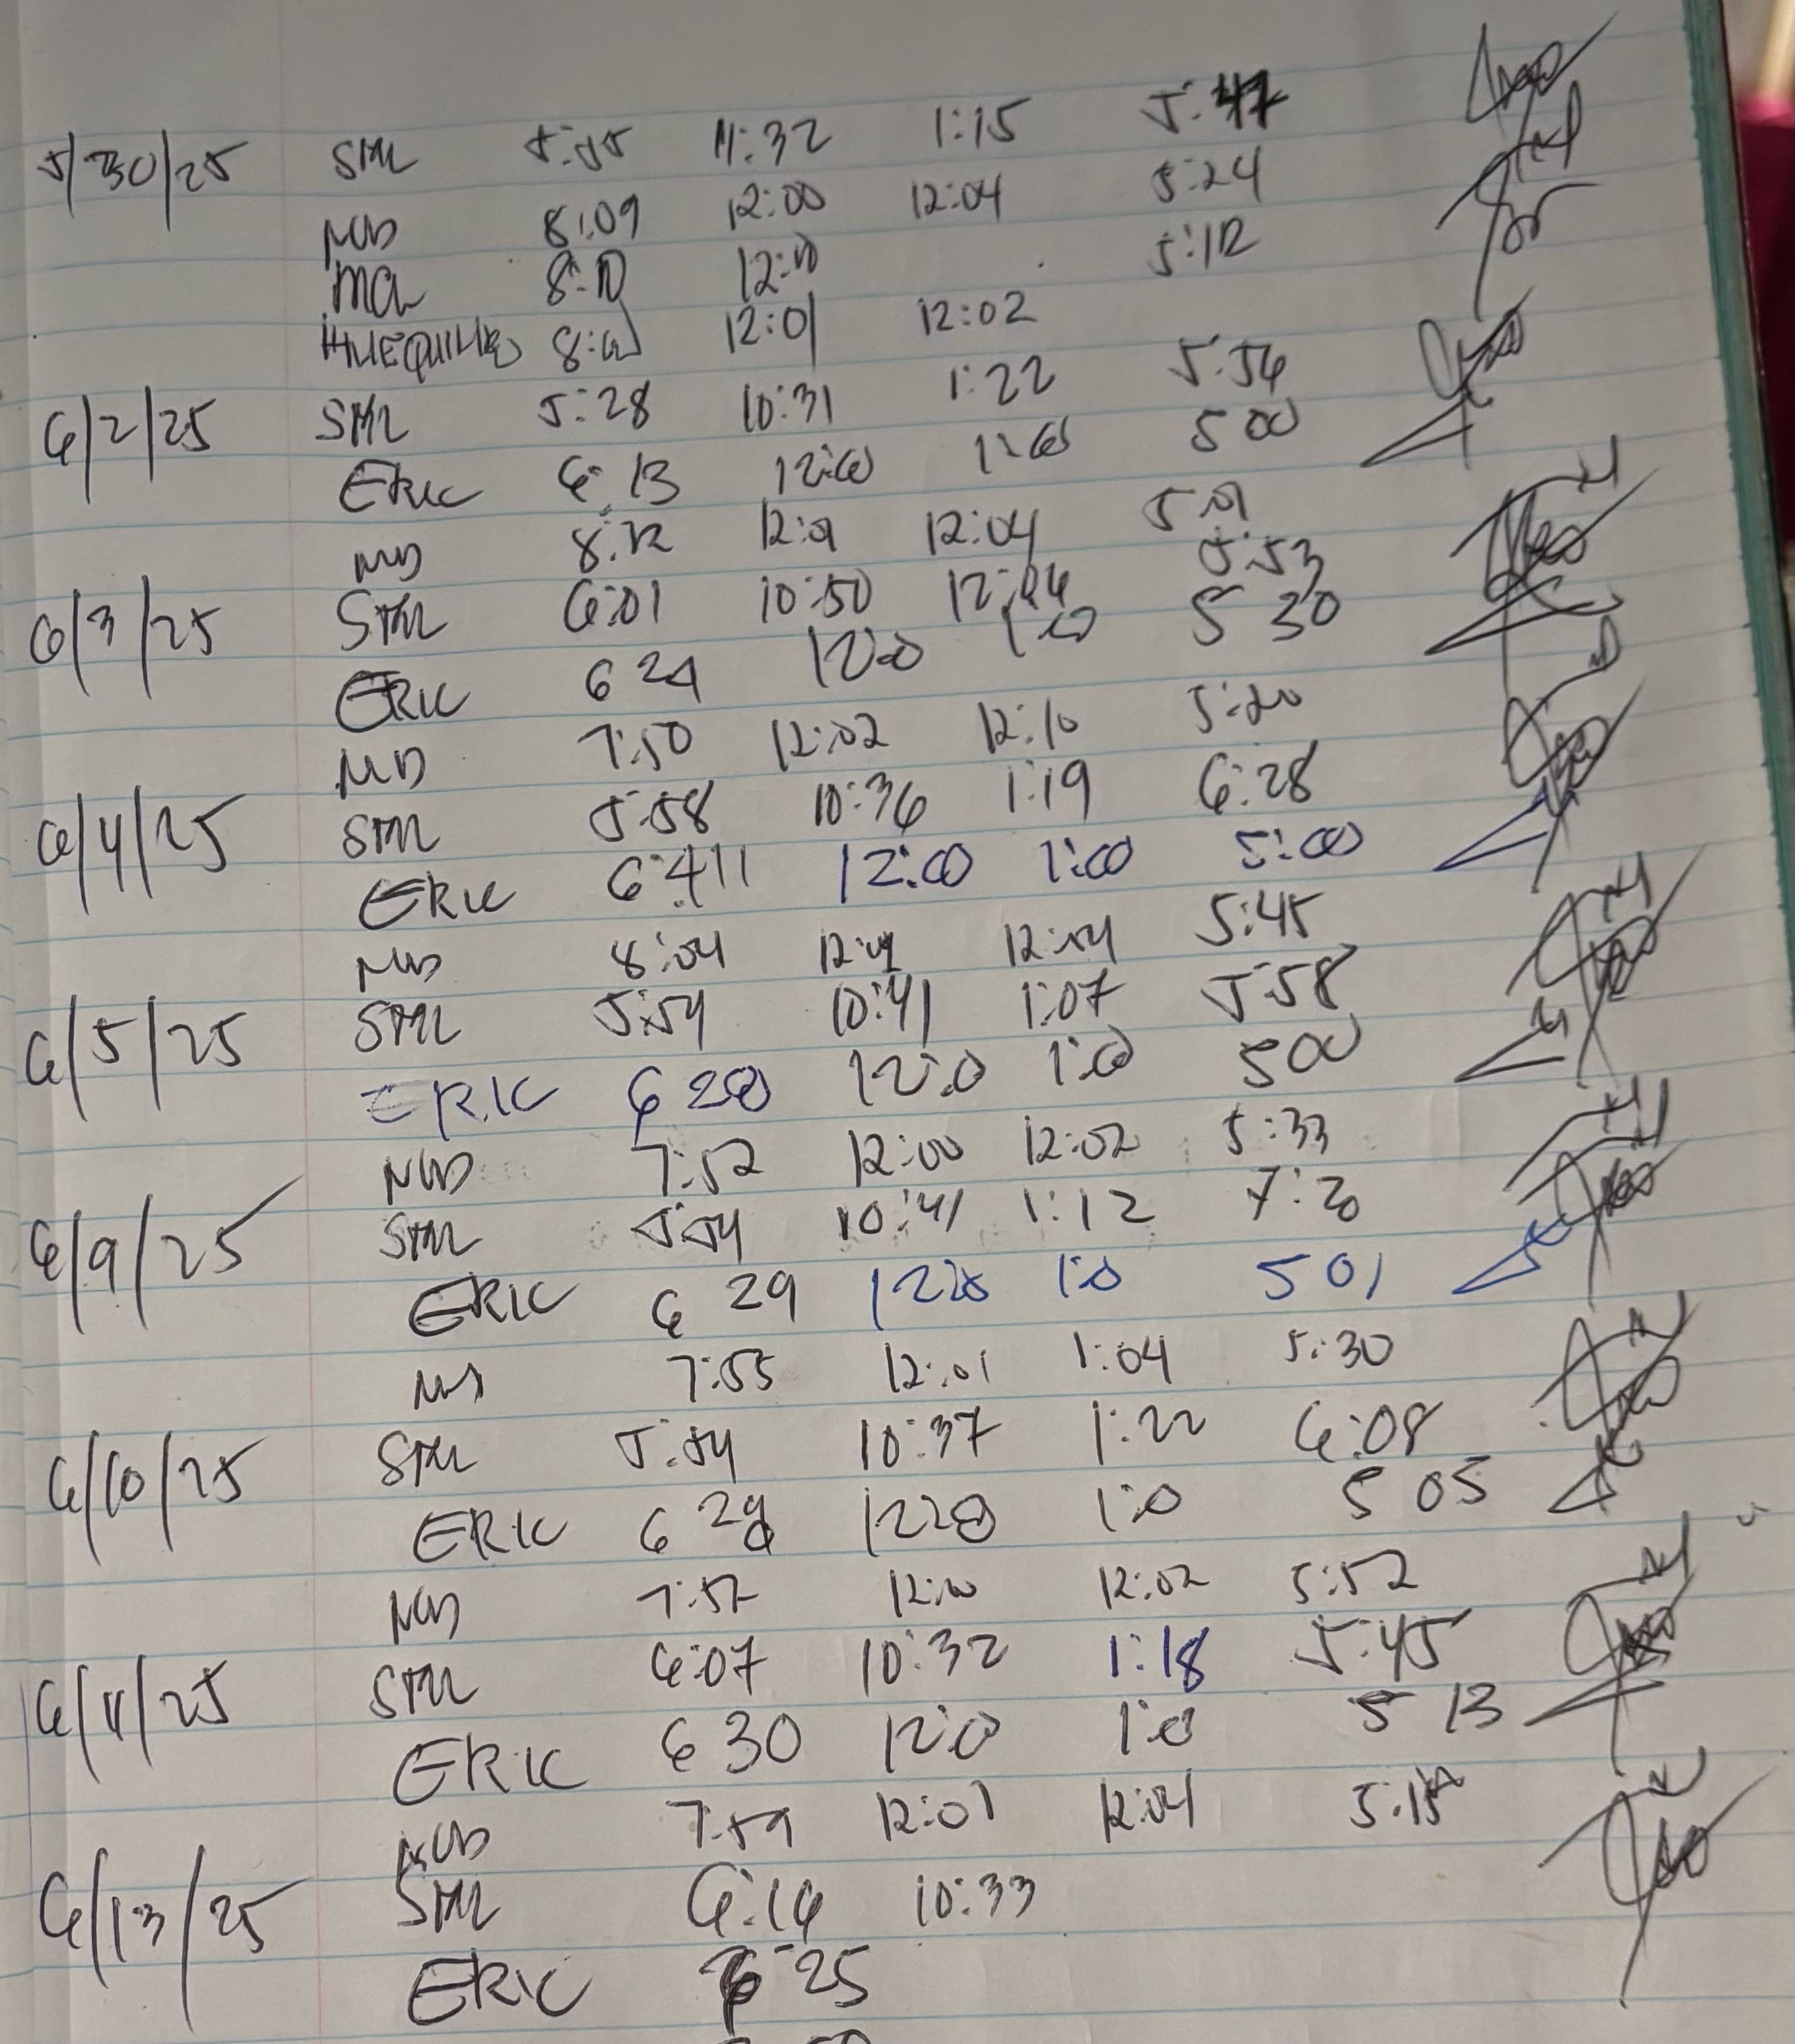 5/30/25 SML 5:55 11:32 1:15 5:47
MD 8:09 12:00 12:04 5:24
8:10 12:10 5:12
12:01 12:02
6/2/25 SML 5:28 10:31 1:22 5:56
ERIC 6:13 12:00 1:00 5 00
MD 8:12 12:01 12:04 5:01
6/3/25 SML 6:01 10:50 5:53
ERIC 6 24 12:0 1:0 5 30
MD 7:50 12:02 12:10 5:20
6/4/25 SML 5:58 10:36 1:19 6:28
ERIC 12:00 1:00 5:00
MD 8:04 12:04 5:45
6/5/25 SML 5:54 10:41 1:07 5:58
ERIC 6 28 12:0 1:0 5 00
MD 7:52 12:00 12:02 5:33
6/9/25 SML 5:54 10:41 1:12
ERIC 6 29 1:0 5 01
7:55 12:01 1:04 5:30
6/10/25 SML 5:54 10:37 1:22 6:08
ERIC 6 29 1:0 5 05
MD 7:52 12:00 12:02 5:52
6/11/25 SML 6:07 10:32 1:18 5:45
ERIC 6 30 12:0 1:0 5 13
MD 7:59 12:01 12:04
6/13/25 SML 6:16 10:33
ERIC 6 25